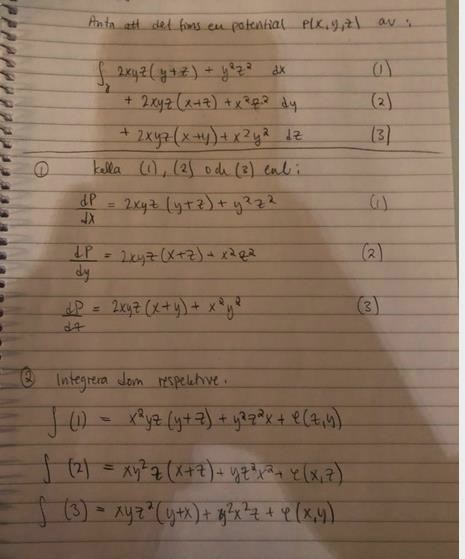 Anta att det finns en potential P(x,y,z) av:
∫γ 2xyz(y+z) + y²z² dx (1)
+ 2xyz(x+z) + x²z² dy (2)
+ 2xyz(x+y) + x²y² dz (3)
① kalla (1), (2) och (3) enl:
dP/dx = 2xyz(y+z) + y²z² (1)
dP/dy = 2xyz(x+z) + x²z² (2)
dP/dz = 2xyz(x+y) + x²y² (3)
② Integrera dom respektive.
∫ (1) = x²yz(y+z) + y²z²x + φ(z,y)
∫ (2) = xy²z(x+z) + yz²x² + φ(x,z)
∫ (3) = xyz²(y+x) + y²x²z + φ(x,y)